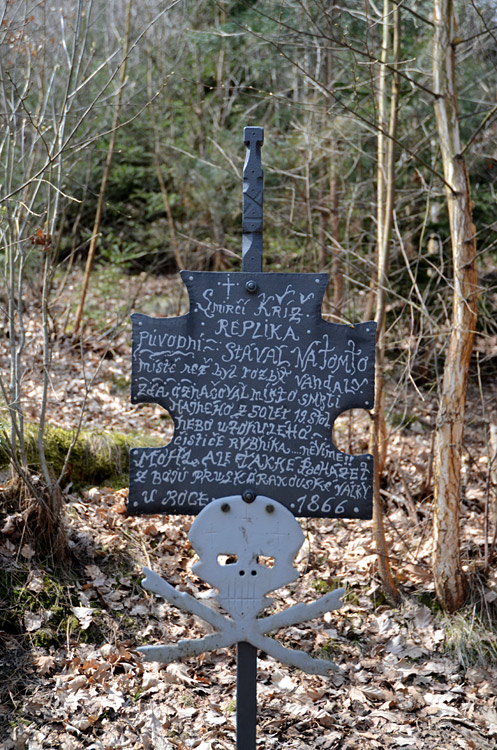 † Smírčí KŘÍŽ
REPLIKA
PŮVODNÍ STÁVAL NA TOMTO
místě než byl rozbit VANDALY
ZDE OZNAČOVAL MÍSTO SMRTI
Z 50 LET 19. STOL
NEBO
čističe RYBNÍKA ... nevíme!
MOHL ALE TAKKÉ POCHÁZET
Z BOJŮ PRUSKÁRAKOUSKÉ VÁLKY
U ROCE 1866